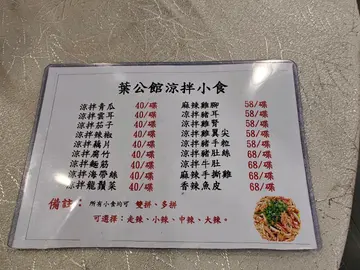 葉公館涼拌小食
涼拌青瓜 40/碟 麻辣雞腳 58/碟
涼拌雲耳 40/碟 涼拌豬耳 58/碟
涼拌茄子 40/碟 涼拌雞腎 58/碟
涼拌辣椒 40/碟 涼拌雞翼尖 58/碟
涼拌藕片 40/碟 涼拌豬手粒 58/碟
涼拌腐竹 40/碟 涼拌豬肚絲 68/碟
涼拌麵筋 40/碟 涼拌牛肚 68/碟
涼拌海帶絲 40/碟 麻辣手撕雞 68/碟
涼拌龍鬚菜 40/碟 香辣魚皮 68/碟
備註： 所有小食均可 雙拼、多拼
可選擇：走辣、小辣、中辣、大辣。